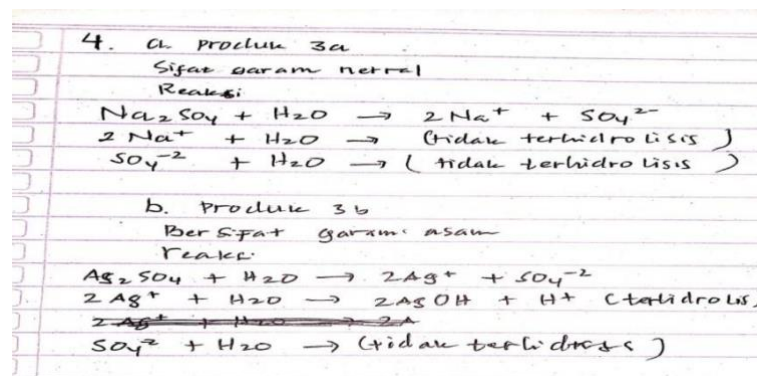 4. a. Produk 3a
Sifat garam netral
Reaksi
Na2SO4 + H2O → 2Na+ + SO4 2-
2 Na+ + H2O → (tidak terhidrolisis)
SO4-2 + H2O → (tidak terhidrolisis)
b. Produk 3b
Bersifat garam asam
reaksi
Ag2SO4 + H2O → 2Ag+ + SO4-2
2 Ag+ + H2O → 2AgOH + H+ (terhidrolis
2 Ag+ + H2O → 2A
SO4 2- + H2O → (tidak